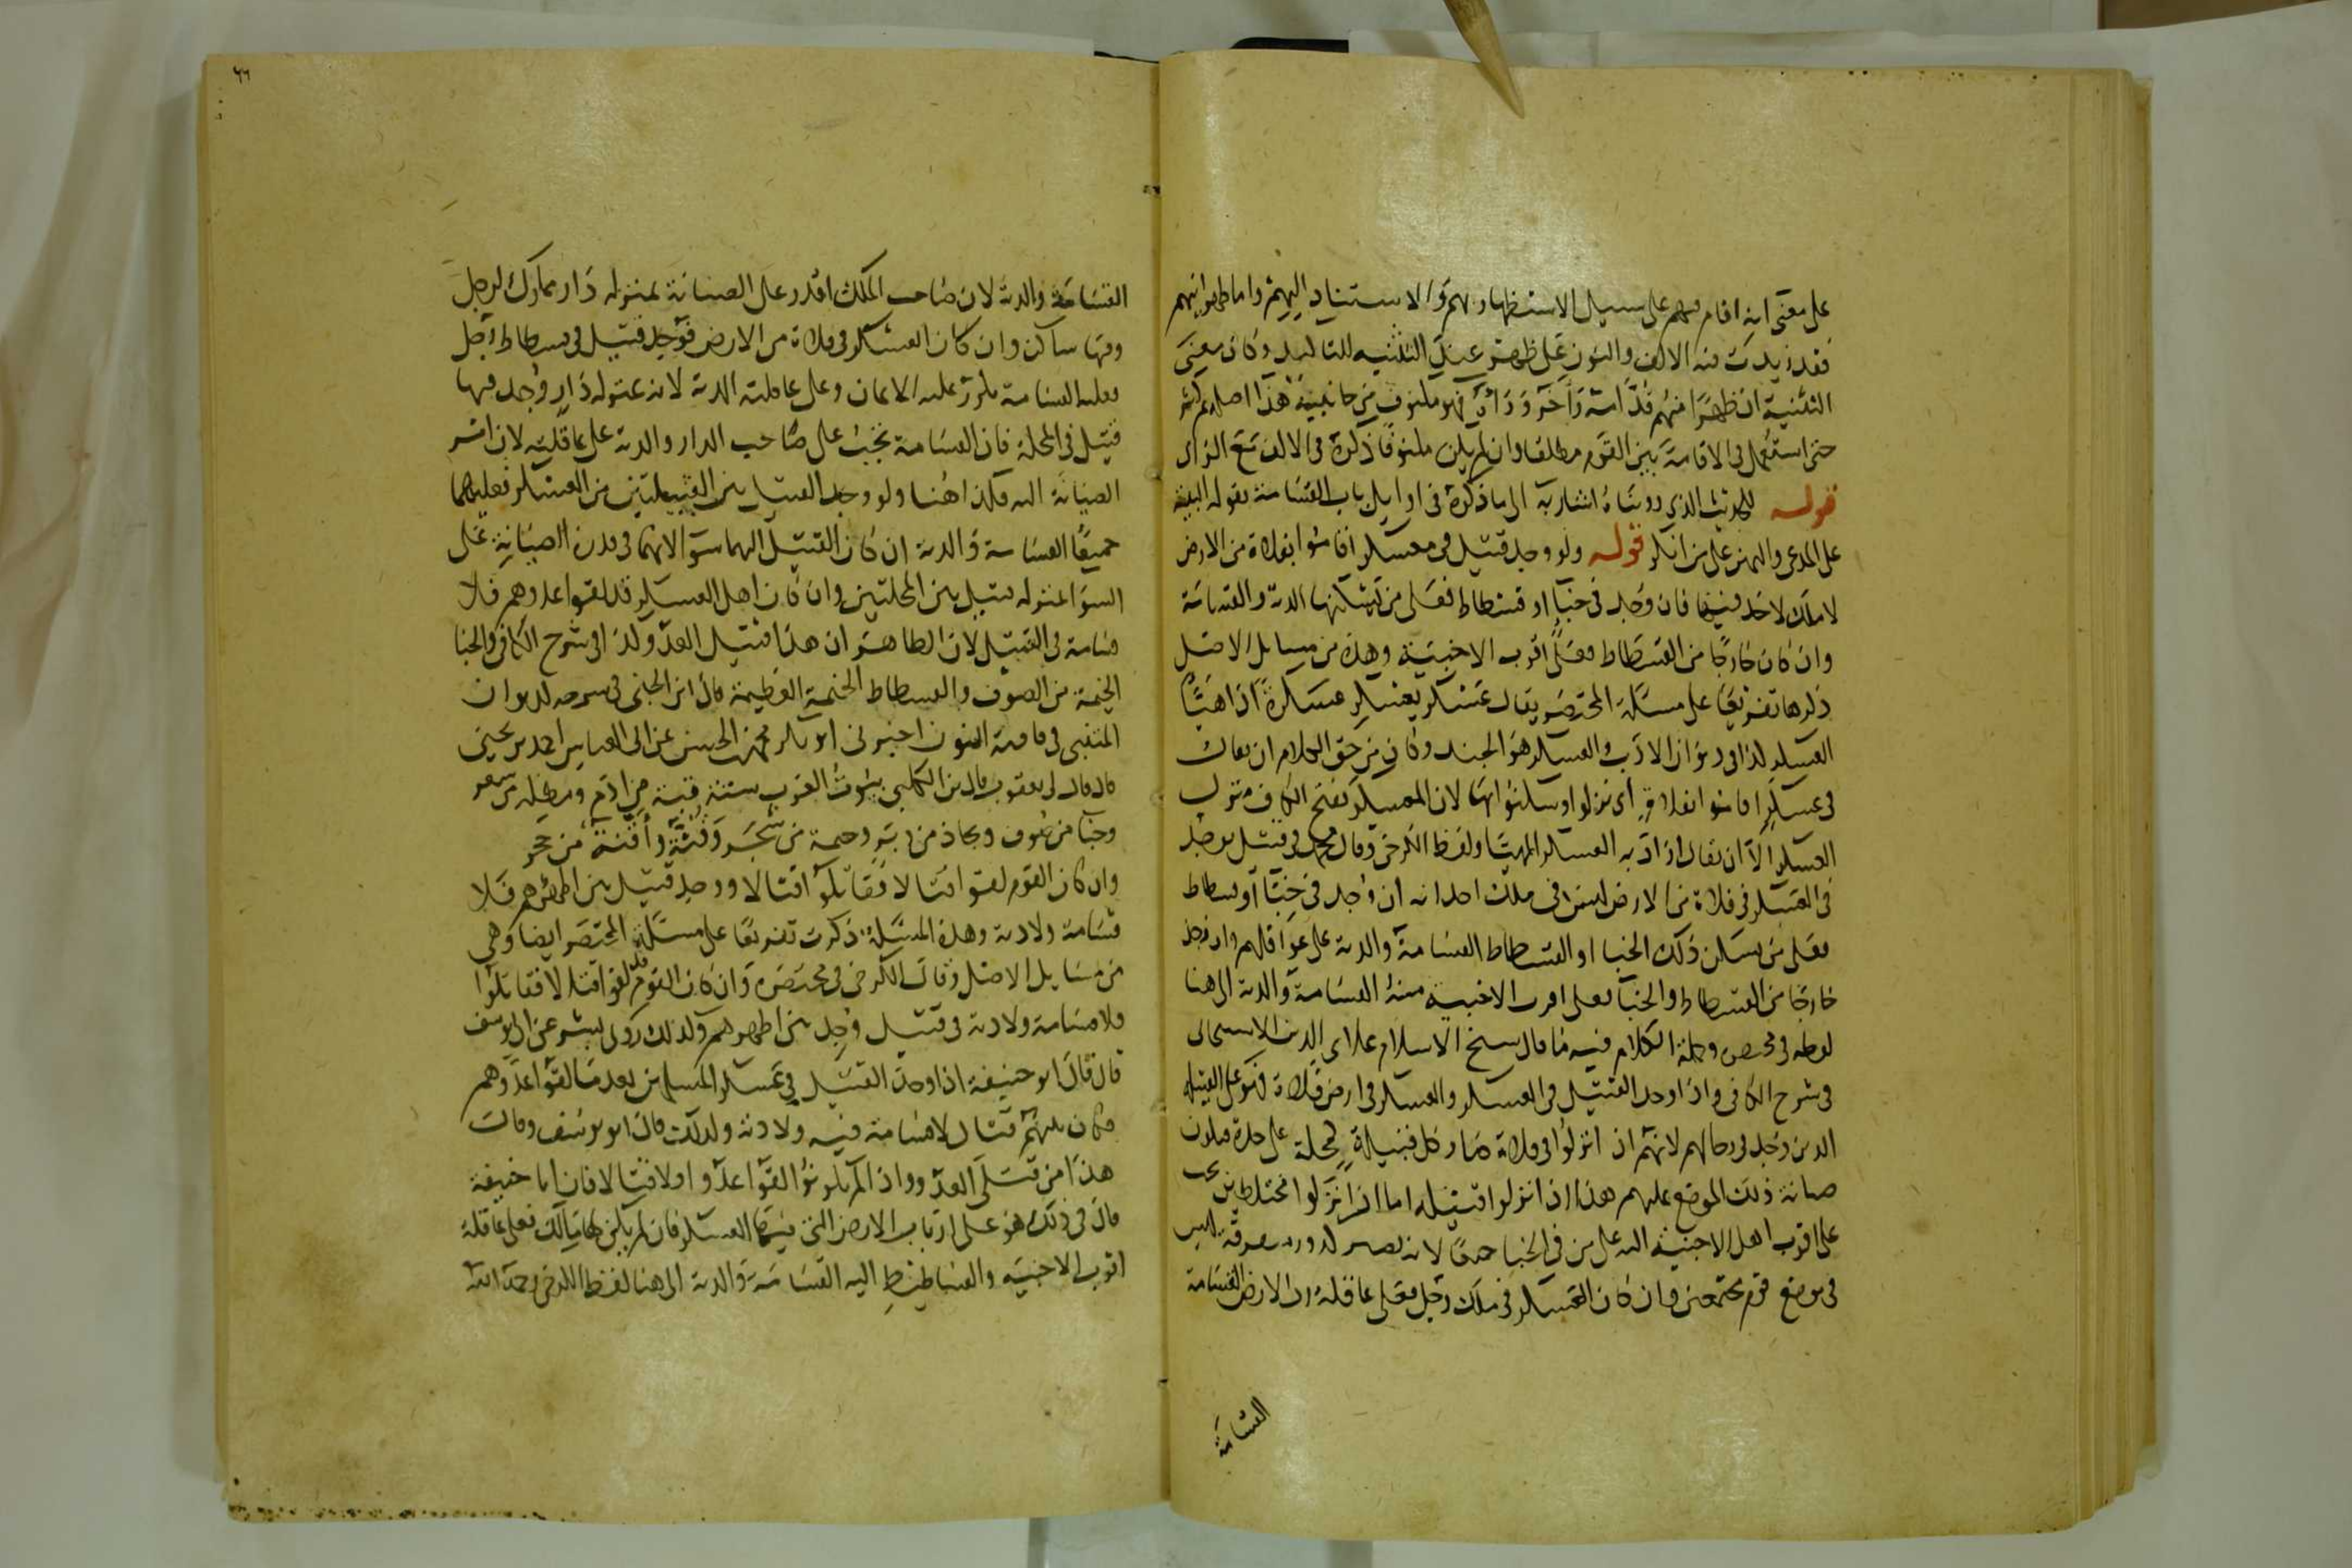 على معنى انه اقام فيهم على سبيل الاستظهار بهم والاستناد اليهم واما ظهرانيهم
فقد زيدت فيه الالف والنون على ظهر عند التثنية للتاكيد وكان معنى
التثنية ان ظهرا منهم قدامه وآخر وراءه فهو مكنوف من جانبيه هذا اصله ثم كثر
حتى استعمل فى الاقامة بين القوم مطلقا وان لم يكن مكنوفا ذكره فى الالف مع الراى
قوله للحديث الذي رويناه اشار به الى ما ذكره فى اوايل باب القسامة بقوله البينة
على المدعى واليمين على من انكر قوله ولو وجد قتيل فى معسكر اقاموا بفلاة من الارض
لا ملك لاحد فيها فان وجد فى خبا او فسطاط فعلى من يسكنها الدية والقسامة
وان كان خارجا من الفسطاط فعلى اقرب الاخبية وهذه من مسايل الاصل
ذكرها تفريعا على مسئلة المختصر يقال عسكر يعسكر عسكرة اذا هيأ
العسكر كذا فى ديوان الادب والعسكر هو الجند وكان من حق الكلام ان يقال
فى عسكر اقاموا بفلاة أى نزلوا وسكنوا بها لان المعسكر بفتح الكاف منزل
العسكر الا ان يقال اراد به العسكر المهيأ ولفظ الكرخى وقال محمد فى قتيل يوجد
فى العسكر فى فلاة من الارض ليس فى ملك احد انه ان وجد فى خبا او فسطاط
فعلى من يسكن ذلك الخبا او الفسطاط القسامة والدية على عواقلهم وان وجد
خارجا من الفسطاط والخبا فعلى اقرب الاخبية منه القسامة والدية الى هنا
لفظه فى مختصره وجملة الكلام فيه ما قال شيخ الاسلام علاء الدين الاسبيجابى
فى شرح الكافى واذا وجد القتيل فى العسكر والعسكر فى ارض فلاة فهو على القبيلة
الذين وجد فى رحالهم لانهم اذا انزلوا فى فلاة صار كل قبيلة كمحلة على حدة فيكون
صيانة ذلك الموضع عليهم هذا اذا نزلوا قبيلة اما اذا نزلوا مختلطين يجب
على اقرب اهل الاخبية اليه على من فى الخبا جميعا لانه
فى موضع قوم مجتمعين وان كان العسكر فى ملك رجل فعلى عاقلة رب الارض القسامة
القسامة
٦٦
القسامة والدية لان صاحب الملك اقدر على الصيانة بمنزلة دار مملوكة لرجل
وفيها ساكن وان كان العسكر فى فلاة من الارض فوجد قتيل فى فسطاط رجل
فعليه القسامة يكرر عليه الايمان وعلى عاقلته الدية لانه بمنزلة دار وجد فيها
قتيل فى المحلة فان القسامة تجب على صاحب الدار والدية على عاقلته لان امر
الصيانة اليه فكذا هنا ولو وجد القتيل بين القبيلتين من العسكر فعليهما
جميعا القسامة والدية ان كان القتيل اليهما سوا لانهما فى قدرة الصيانة على
السوا بمنزلة قتيل بين المحلتين وان كان اهل العسكر قد لقوا عدوهم فلا
قسامة فى القتيل لان الظاهر ان هذا قتيل العدو كذا فى شرح الكافى والخبا
الخيمة من الصوف والفسطاط الخيمة العظيمة قال ابن الجنى فى شرحه لديوان
المتنبى فى قافية النون اخبرنى ابو بكر محمد بن الحسن عن ابى العباس احمد بن يحيى
قال قال لى يعقوب قال ابن الكلبى بيوت العرب ستة قبة من ادم ومظلة من شعر
وخبا من صوف وبجاد من وبر وخيمة من شجر وقنة وأقنة من حجر
وان كان القوم لقوا قتالا فقاتلوا قتالا ووجد قتيل بين اظهرهم فلا
قسامة ولا دية وهذه المسئلة ذكرت تفريعا على مسئلة المختصر ايضا وهى
من مسايل الاصل وقال الكرخى فى مختصره وان كان القوم قد لقوا قتالا فقاتلوا
فلا قسامة ولا دية فى قتيل وجد بين اظهرهم وكذلك روى بشر عن ابى يوسف
قال قال ابو حنيفة اذا وجد القتيل فى عسكر المسلمين بعدما لقوا عدوهم
فكان بينهم قتال لا قسامة فيه ولا دية وكذلك قال ابو يوسف وقالت
هذا من قتلى العدو واذا لم يكونوا لقوا عدوا ولا قتالا فان ابا حنيفة
قال فى ذلك هو على ارباب الارض التى فيها العسكر فان لم يكن لها مالك فعلى عاقلة
اقرب الاخبية والفساطيط اليه القسامة والدية الى هنا لفظ الكرخى رحمه الله